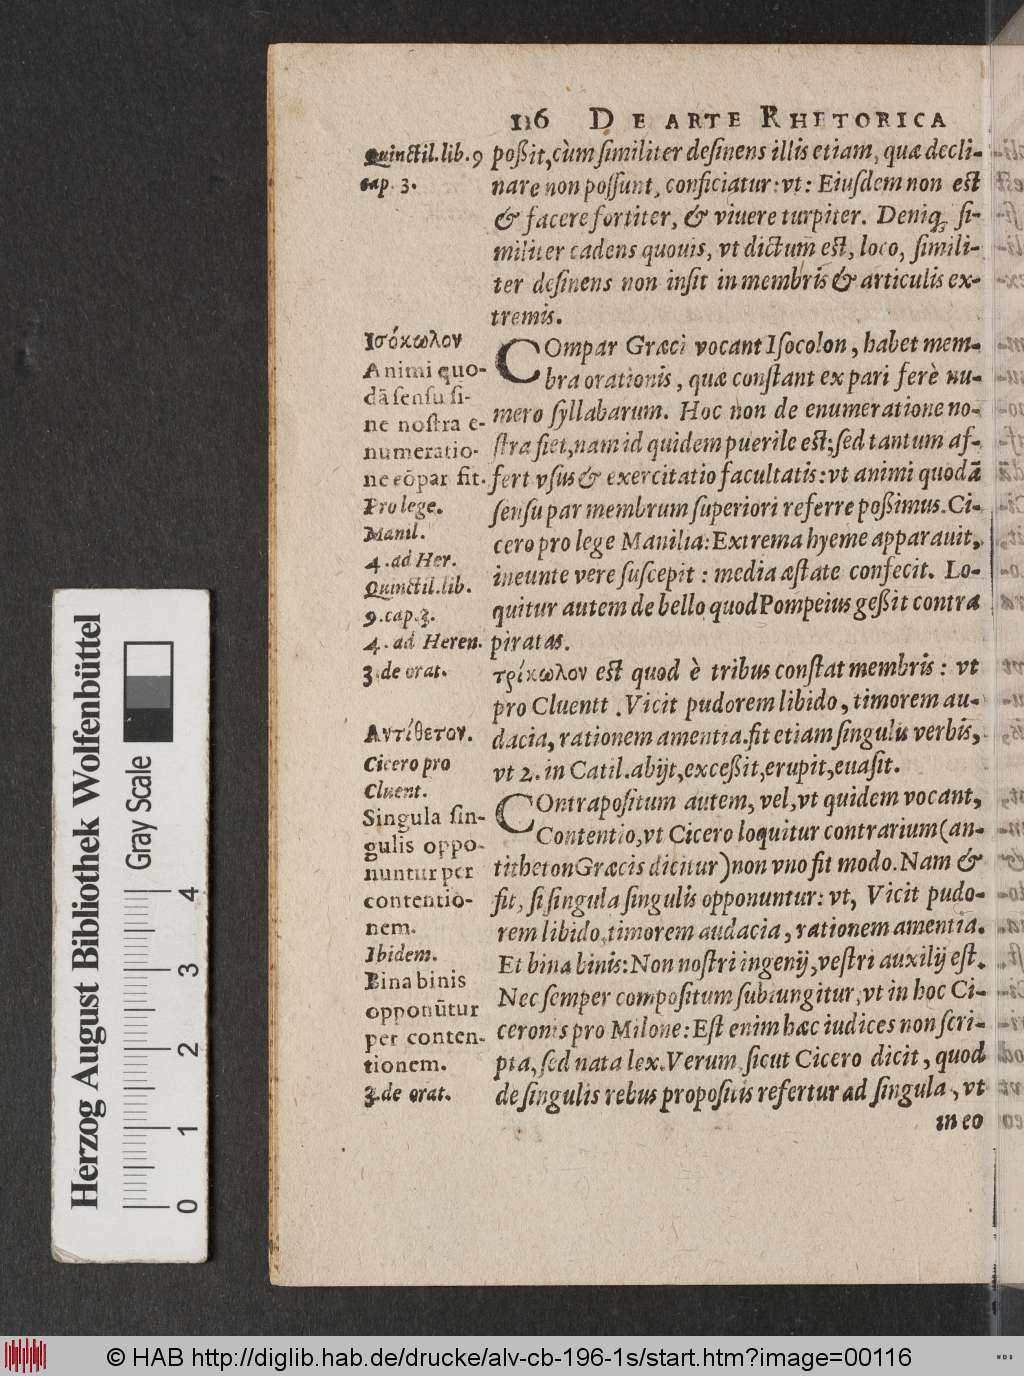 116 DE ARTE RHETORICA
poßit, cùm similiter desinens illis etiam, quæ decli-
nare non possunt, conficiatur: vt: Eiusdem non est
& facere fortiter, & viuere turpiter. Deniq; si-
militer cadens quouis, vt dictum est, loco, simili-
ter desinens non insit in membris & articulis ex-
tremis.
COmpar Græci vocant Isocolon, habet mem-
bra orationis, quæ constant ex pari ferè nu-
mero syllabarum. Hoc non de enumeratione no-
stra fiet, nam id quidem puerile est; sed tantum af-
fert vsus & exercitatio facultatis: vt animi quodā
sensu par membrum superiori referre poßimus. Ci-
cero pro lege Manilia: Extrema hyeme apparauit,
ineunte vere suscepit: media æstate confecit. Lo-
quitur autem de bello quod Pompeius geßit contra
piratas.
τρίκωλον est quod è tribus constat membris: vt
pro Cluentt. Vicit pudorem libido, timorem au-
dacia, rationem amentia. fit etiam singulis verbis,
vt 2. in Catil. abijt, exceßit, erupit, euasit.
COntrapositum autem, vel, vt quidem vocant,
Contentio, vt Cicero loquitur contrarium (an-
titheton Græcis dicitur) non vno fit modo. Nam &
fit, si singula singulis opponuntur: vt, Vicit pudo-
rem libido, timorem audacia, rationem amentia.
Et bina binis: Non nostri ingenij, vestri auxilij est.
Nec semper compositum subiungitur, vt in hoc Ci-
ceronis pro Milone: Est enim hæc iudices non scri-
pta, sed nata lex. Verum sicut Cicero dicit, quod
de singulis rebus propositis refertur ad singula, vt
in eo
Quinctil. lib. 9
cap. 3.
Ισόκωλον
Animi quo-
dā sensu si-
ne nostra e-
numeratio-
ne cōpar fit.
Pro lege.
Manil.
4. ad Her.
Quinctil. lib.
9. cap. 3.
4. ad Heren.
3. de orat.
Αντίθετον.
Cicero pro
Cluent.
Singula sin-
gulis oppo-
nuntur per
contentio-
nem.
Ibidem.
Bina binis
opponūtur
per conten-
tionem.
3. de orat.
Herzog August Bibliothek Wolfenbüttel
Gray Scale
0 1 2 3 4
© HAB http://diglib.hab.de/drucke/alv-cb-196-1s/start.htm?image=00116